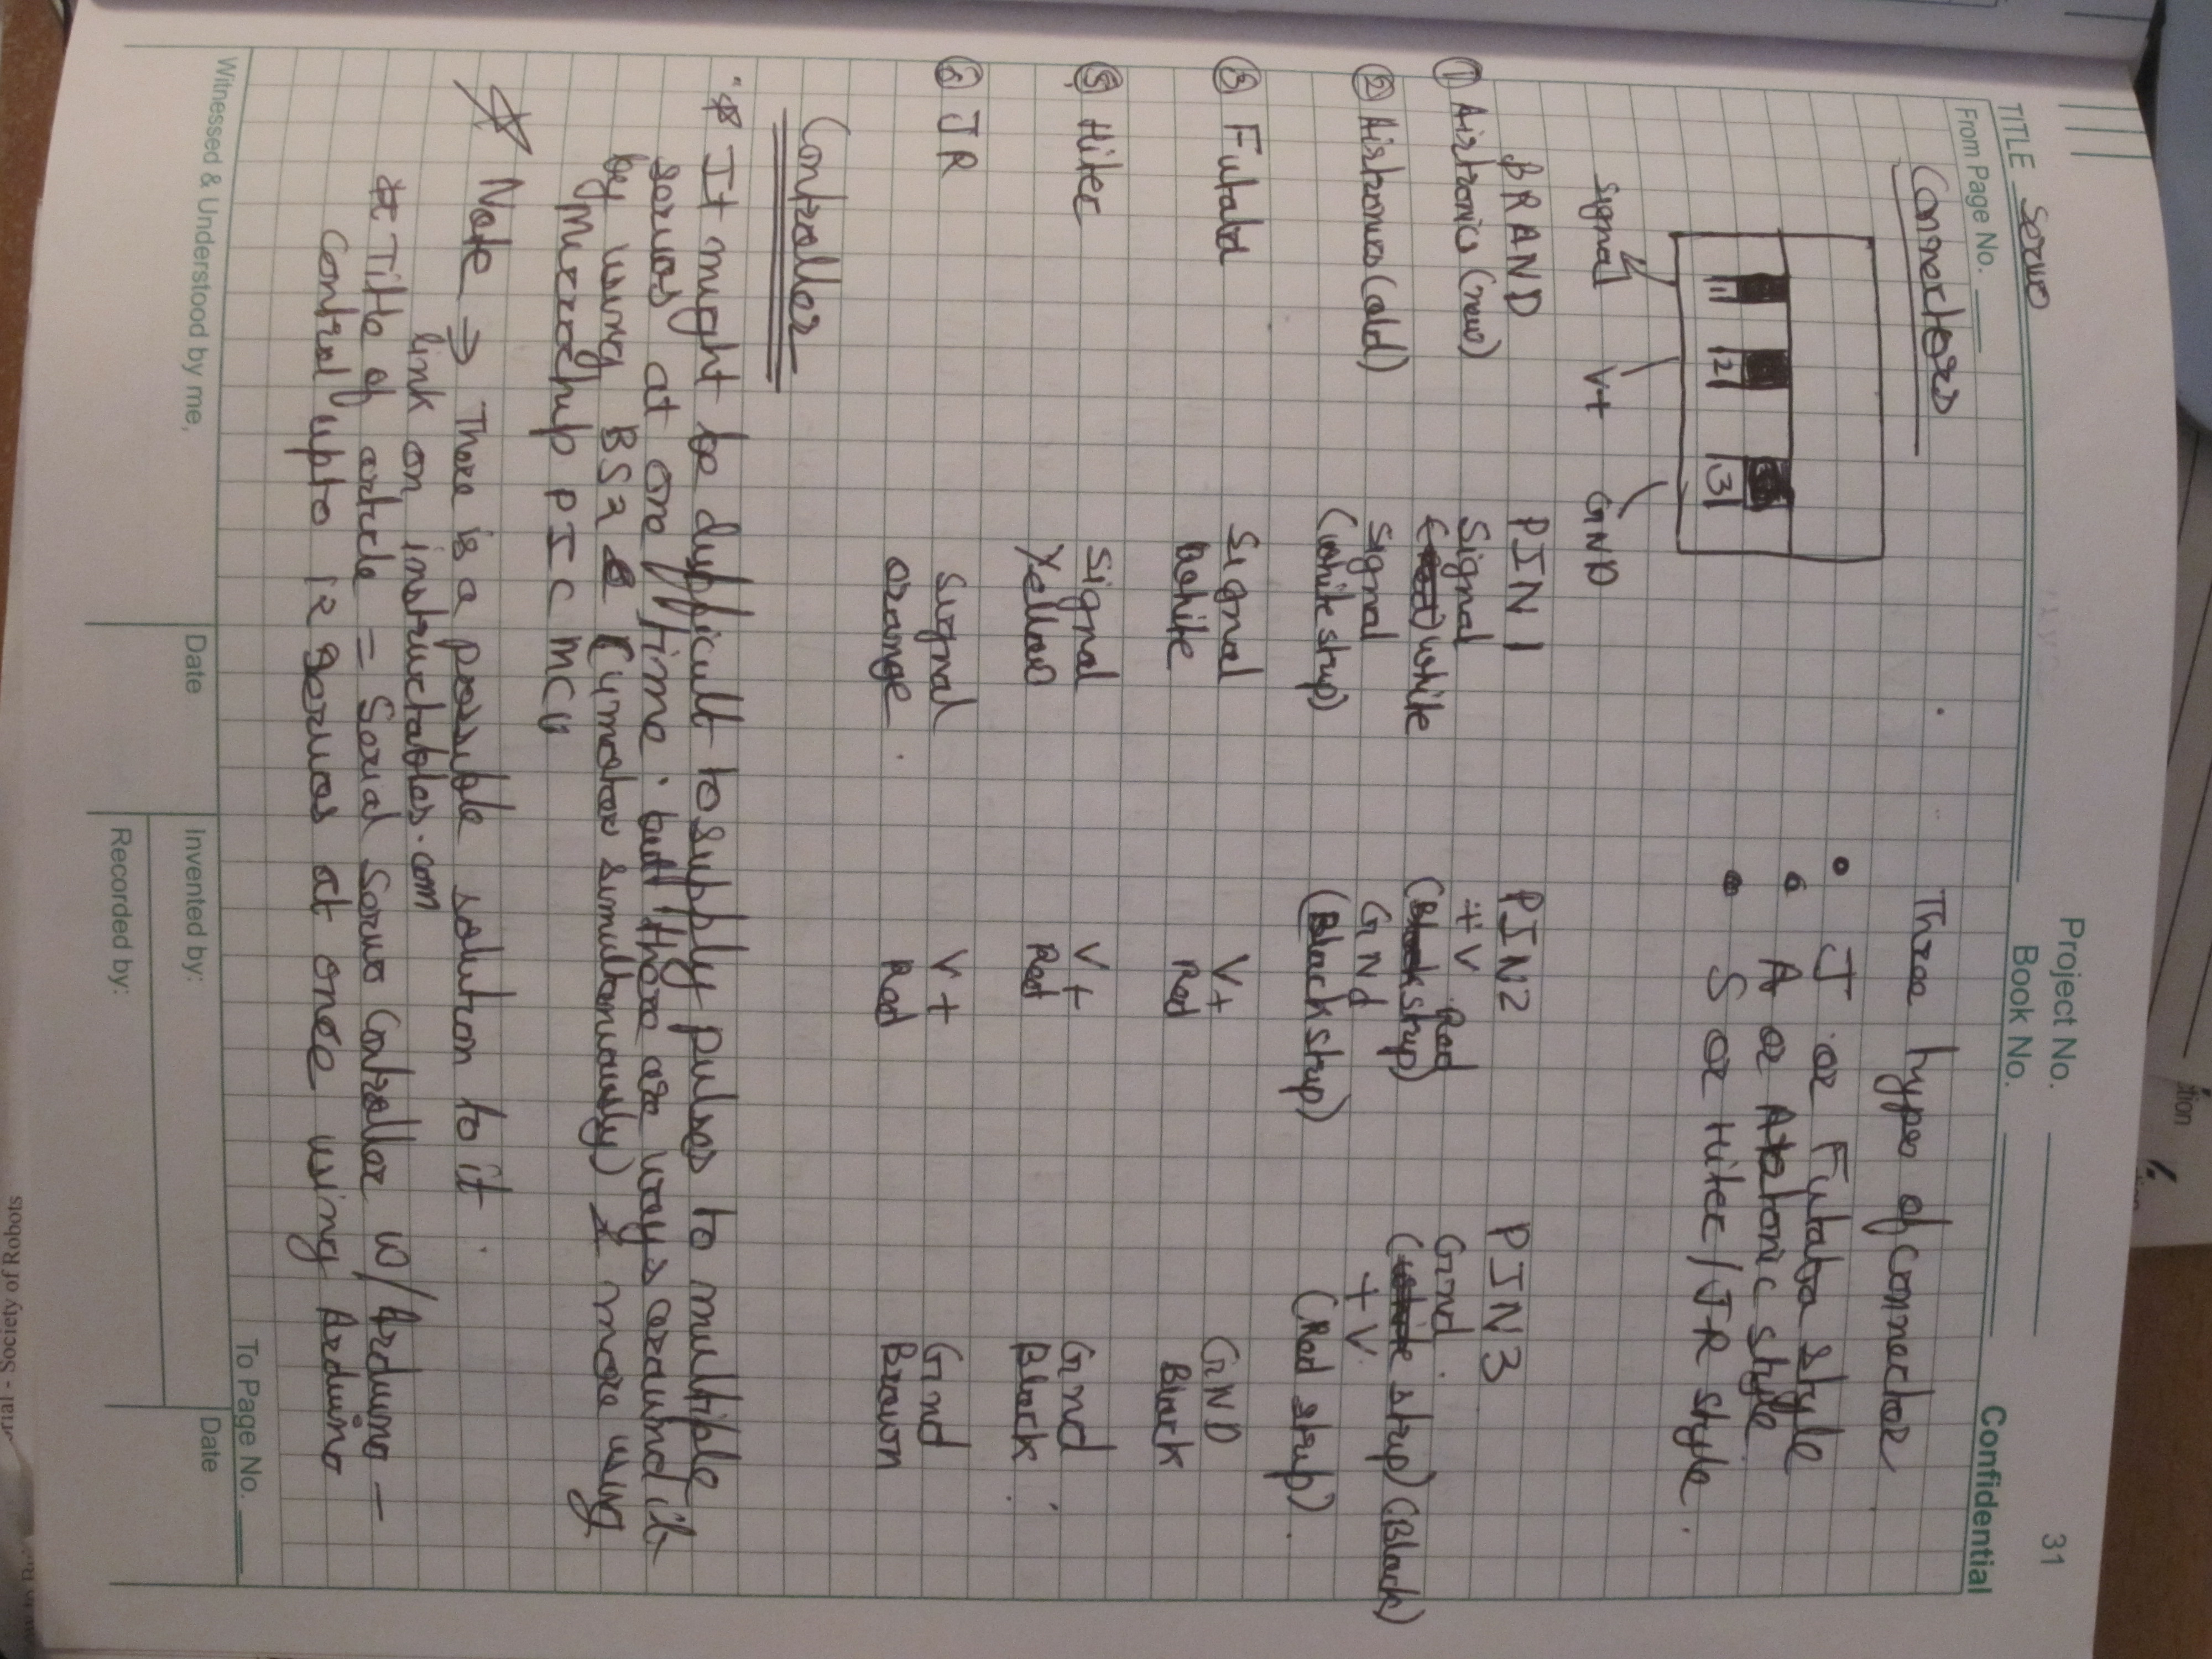 orial - Society of Robots
TITLE Servo
Project No.
31
Book No.
From Page No.
Confidential
Connectors
Three types of connector
J or Futaba style
A or Airtronic style
S or Hitec / JR style
1 2 3
Signal V+ GND
BRAND PIN 1 PIN 2 PIN 3
① Airtronics (new) Signal +V Red Grnd
(Red) white (Black strip) (white strip) (Black)
② Airtronics (old) Signal GNd +V
(white strip) (Black strip) (Red strip)
③ Futaba Signal V+ GND
White Red Black
⑤ Hitec Signal V+ Grnd
Yellow Red Black
⑥ JR Signal V+ Grnd
orange Red Brown
Controller
* It might be difficult to supply pulses to multiple
servos at one time but there are ways around it
by using BS2 (4 motors simultaneously) & more using
Microchip PIC MCU
Note → There is a possible solution to it.
link on instructables.com
* Title of article = Serial Servo Controller w/ Arduino -
Control upto 12 servos at once using Arduino
To Page No.
Witnessed & Understood by me,
Date
Invented by:
Date
Recorded by: